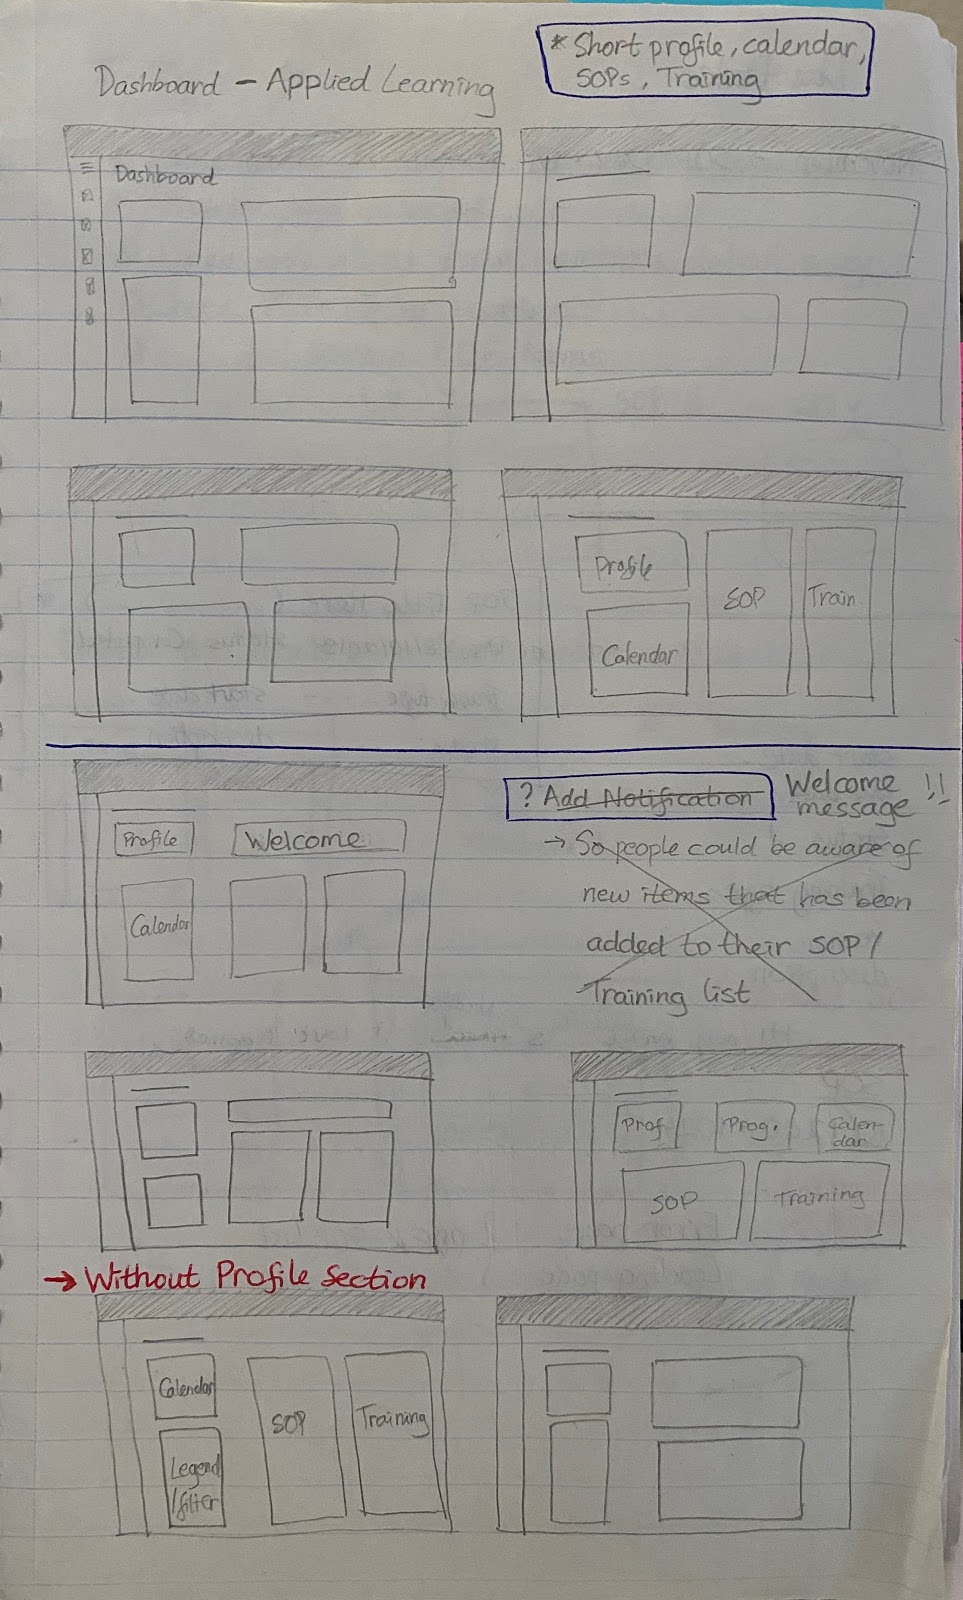 Dashboard - Applied Learning
* Short profile, calendar,
SOPs, Training
Dashboard
Profile
SOP
Train
Calendar
Profile
Welcome
Calendar
? Add Notification
Welcome
message !!
→ So people could be aware of
new items that has been
added to their SOP /
Training list
Prof
Prog.
Calen-
dar
SOP
Training
→ Without Profile Section
Calendar
SOP
Training
Legend
/filter